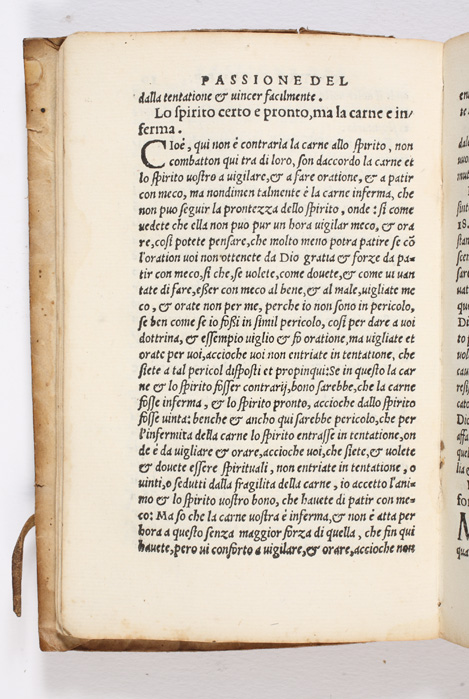 PASSIONE DEL
dalla tentatione & uincer facilmente.
Lo spirito certo e pronto, ma la carne e in/
ferma.
CIoé, qui non é contraria la carne allo spirito, non
combatton qui tra di loro, son daccordo la carne et
lo spirito uostro a uigilare, & a fare oratione, & a patir
con meco, ma nondimen talmente é la carne inferma, che
non puo seguir la prontezza dello spirito, onde: si come
uedete che ella non puo pur un hora uigilar meco, & ora
re, così potete pensare, che molto meno potra patire se cõ
l'oration uoi non ottenete da Dio gratia & forze da pa-
tir con meco, si che, se uolete, come douete, & come ui uan
tate di fare, esser con meco al bene, & al male, uigliate me
co, & orate non per me, perche io non sono in pericolo,
se ben come se io fossi in simil pericolo, così per dare a uoi
dottrina, & essempio uiglio & fò oratione, ma uigliate et
orate per uoi, accioche uoi non entriate in tentatione, che
siete a tal pericol disposti et propinqui: Se in questo la car
ne & lo spirito fosser contrarij, bono sarebbe, che la carne
fosse inferma, & lo spirito pronto, accioche dallo spirito
fosse uinta: benche & ancho qui sarebbe pericolo, che per
l'infermità della carne lo spirito entrasse in tentatione, on
de é da uigliare & orare, accioche uoi, che siete, & uolete
& douete essere spirituali, non entriate in tentatione, o
uinti, o sedutti dalla fragilita della carne, io accetto l'ani-
mo & lo spirito uostro bono, che hauete di patir con me-
co: Ma so che la carne uostra é inferma, & non é atta per
hora a questo senza maggior forza di quella, che fin qui
hauete, pero ui conforto a uigilare, & orare, accioche non